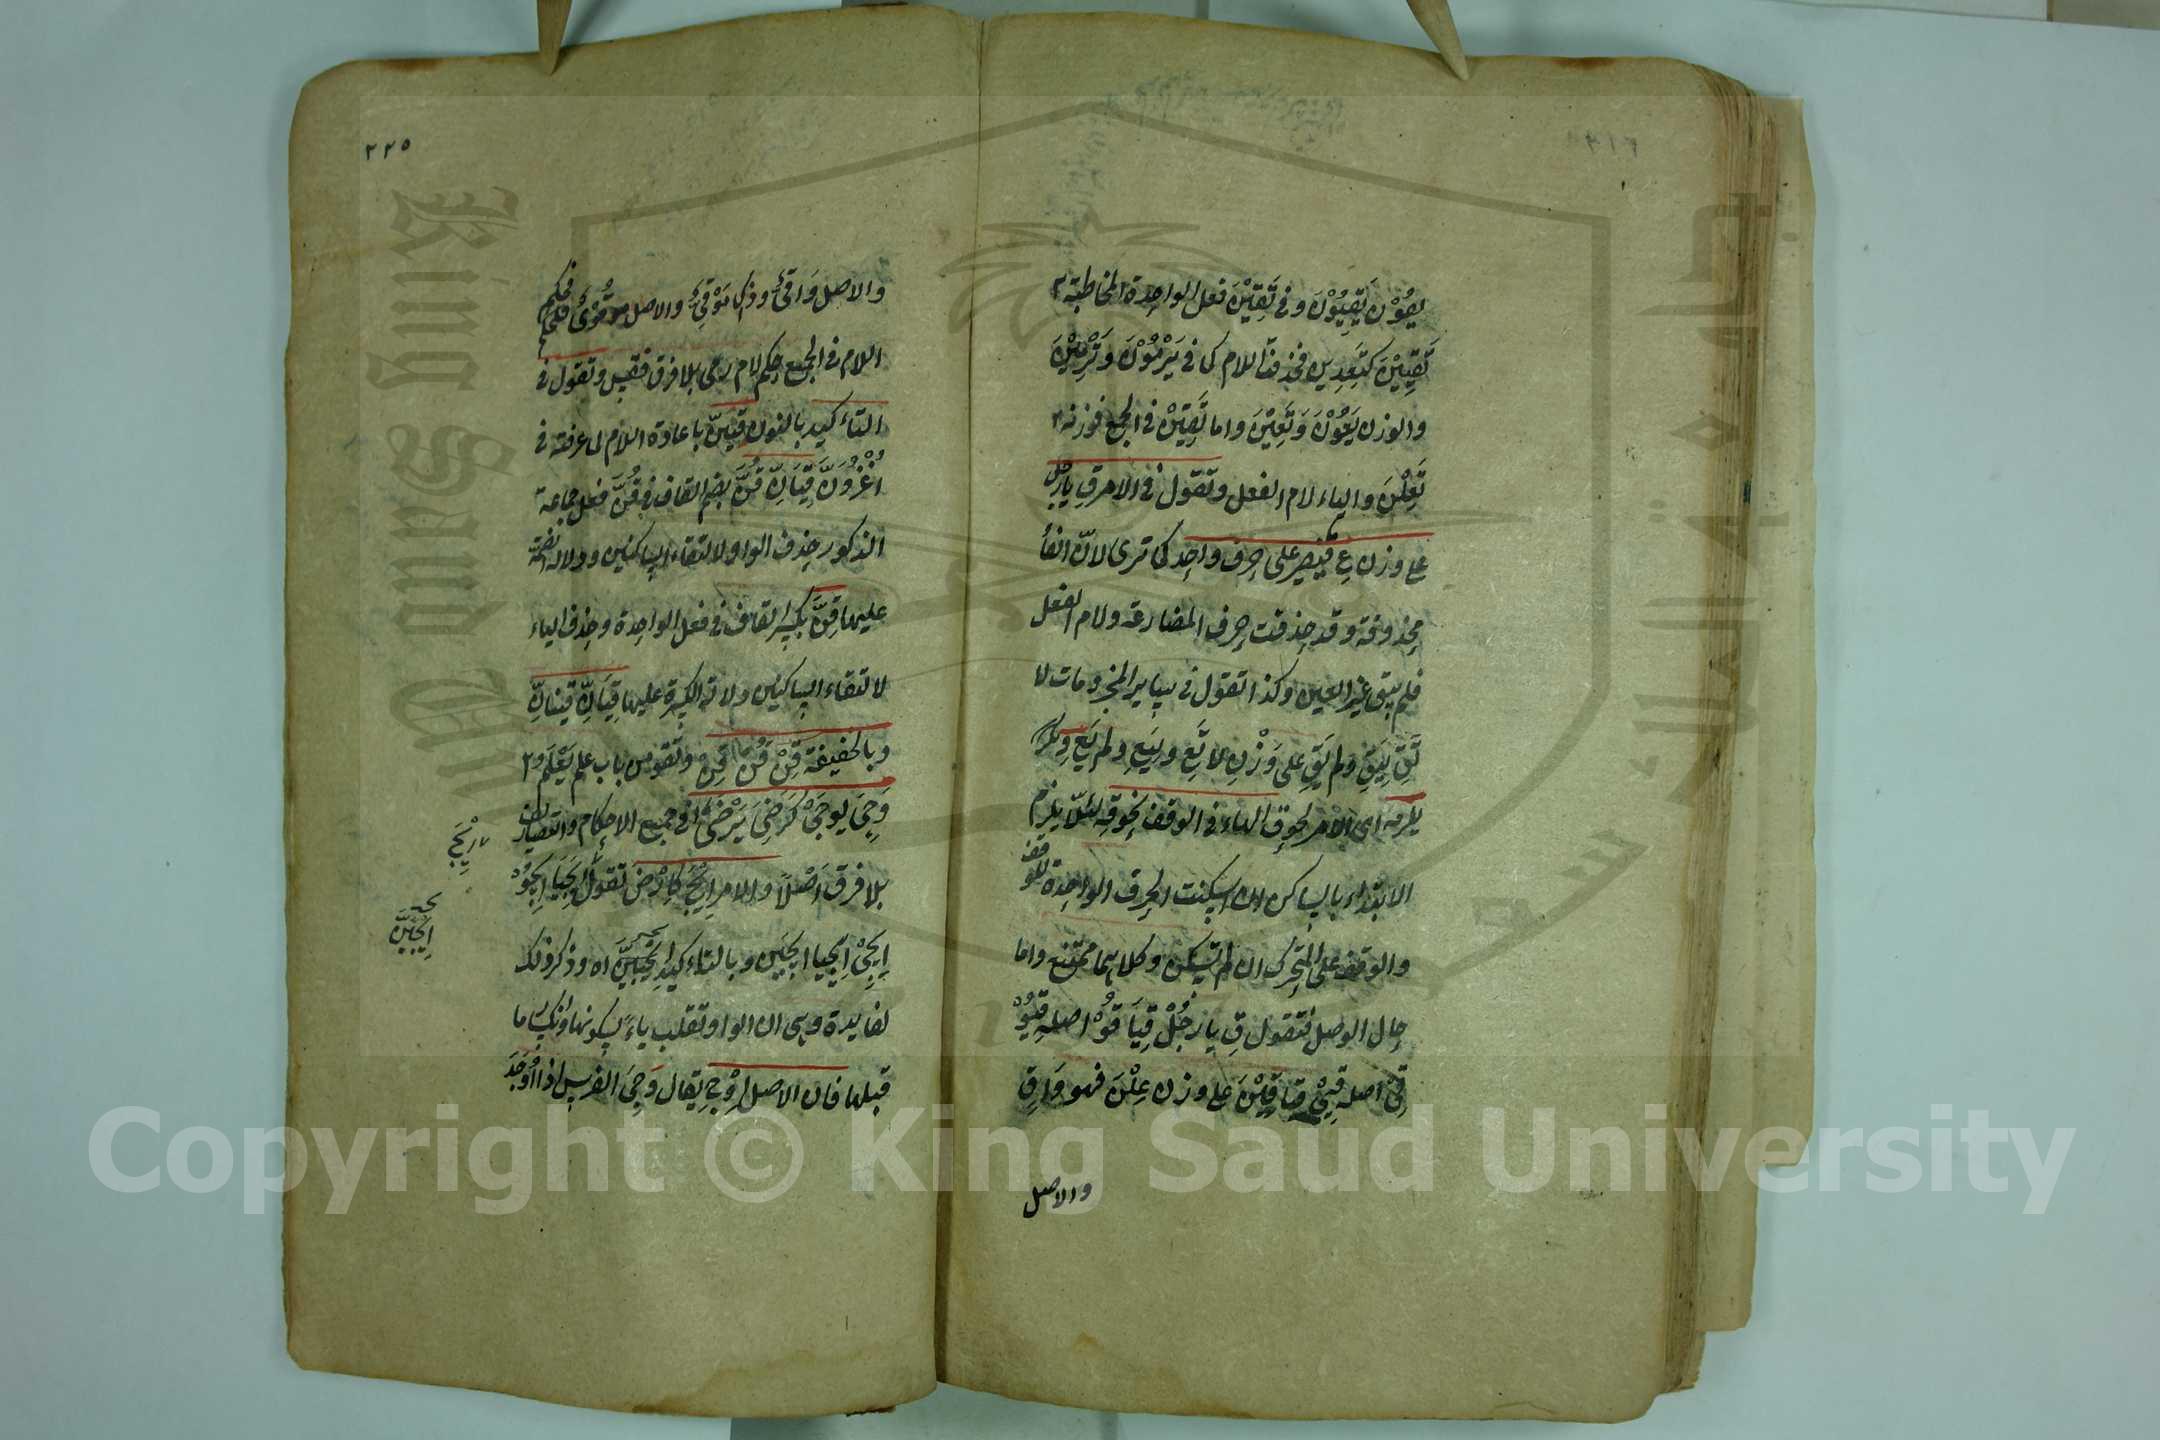 يقيون يَقِيُوْنَ وفي تَقِيْنَ فعل الواحدة المخاطبة
تَقِيِيْنَ كتَعِدِين فحذفت اللام كما في يَرْمُوْنَ وتَرْمِيْنَ
والوزن يَعُوْنَ وَتَعِيْنَ واما تَقِيْنَ في الجمع فوزنه
تَعِلْنَ والياء لام الفعل وتقول في الامر قِ يا رجل
على وزن عِ فيصير على حرف واحد كما ترى لانّ الفأ
محذوفة وقد حذفت حرف المضارعة ولام الفعل
فلم يبق غير العين وكذا تقول في سائر المجزومات لا
تَقِ ليَقِ ولم يَقِ على وَزْنِ لا تَعِ وليَعِ ولم يَعِ
يلزمه اى الامر لحوق الهاء في الوقف نحو قِهْ لئلّا يلزم
الابتداء بالساكن ان اسكنت الحرف الواحدة للوقف
والوقف على المتحرك ان لم تسكن وكلاهما ممتنع واما
حال الوصل فتقول قِ يا رَجُلُ قِيَا قُوْا اصله قِيُوْا
قِى اصله قِيِيْ قِيَا قِيْنَ على وزن عِلْنَ فهو وَاقٍ
والاصل
٢٢٥
والاصل وَاقِىٌ وذاك مَوْقِىٌّ والاصل مَوْقُوْىٌ فحكم
اللام في الجمع حكم لام رمى بلا فرق فقس وتقول في
التاءكيد بالنون قِيَنَّ باعادة اللام لما عرفته في
اُغْزُوَنَّ قِيَانِّ قُنَّ بضم القاف في قُنَّ فعل جماعة
الذكور حذف الواو لالتقاء الساكنين ودلالة الضمة
عليها قِنَّ بكسر القاف في فعل الواحدة وحذف الياء
لالتقاء الساكنين ودلالة الكسرة عليها قِيَانِّ قِينَانِّ
وبالخفيفة قِيَنْ قُنْ قِنْ وتقول من باب علم يَعْلَمُ
وَجِىَ يوجَىْ كَرَضِىَ يَرْضَىْ في جميع الاحكام والتصاريف
بلا فرق اَصْلًا والامر اِيْجَ كاِرْضَ تقول اِيْجَ اِيْجَيَا اِيْجَوْا
اِيْجَىْ اِيْجَيا اِيْجَيْن وبالتاءكيد اِيْجَيَنَّ اه وذكر ذلك
لفايدة وهى ان الواو تقلب ياءً لسكونها وانكسار ما
قبلها فان الاصل اِوْجَ يقال وَجِىَ الفرس اذا وَجَدَ
اِيْجَيَنَّ